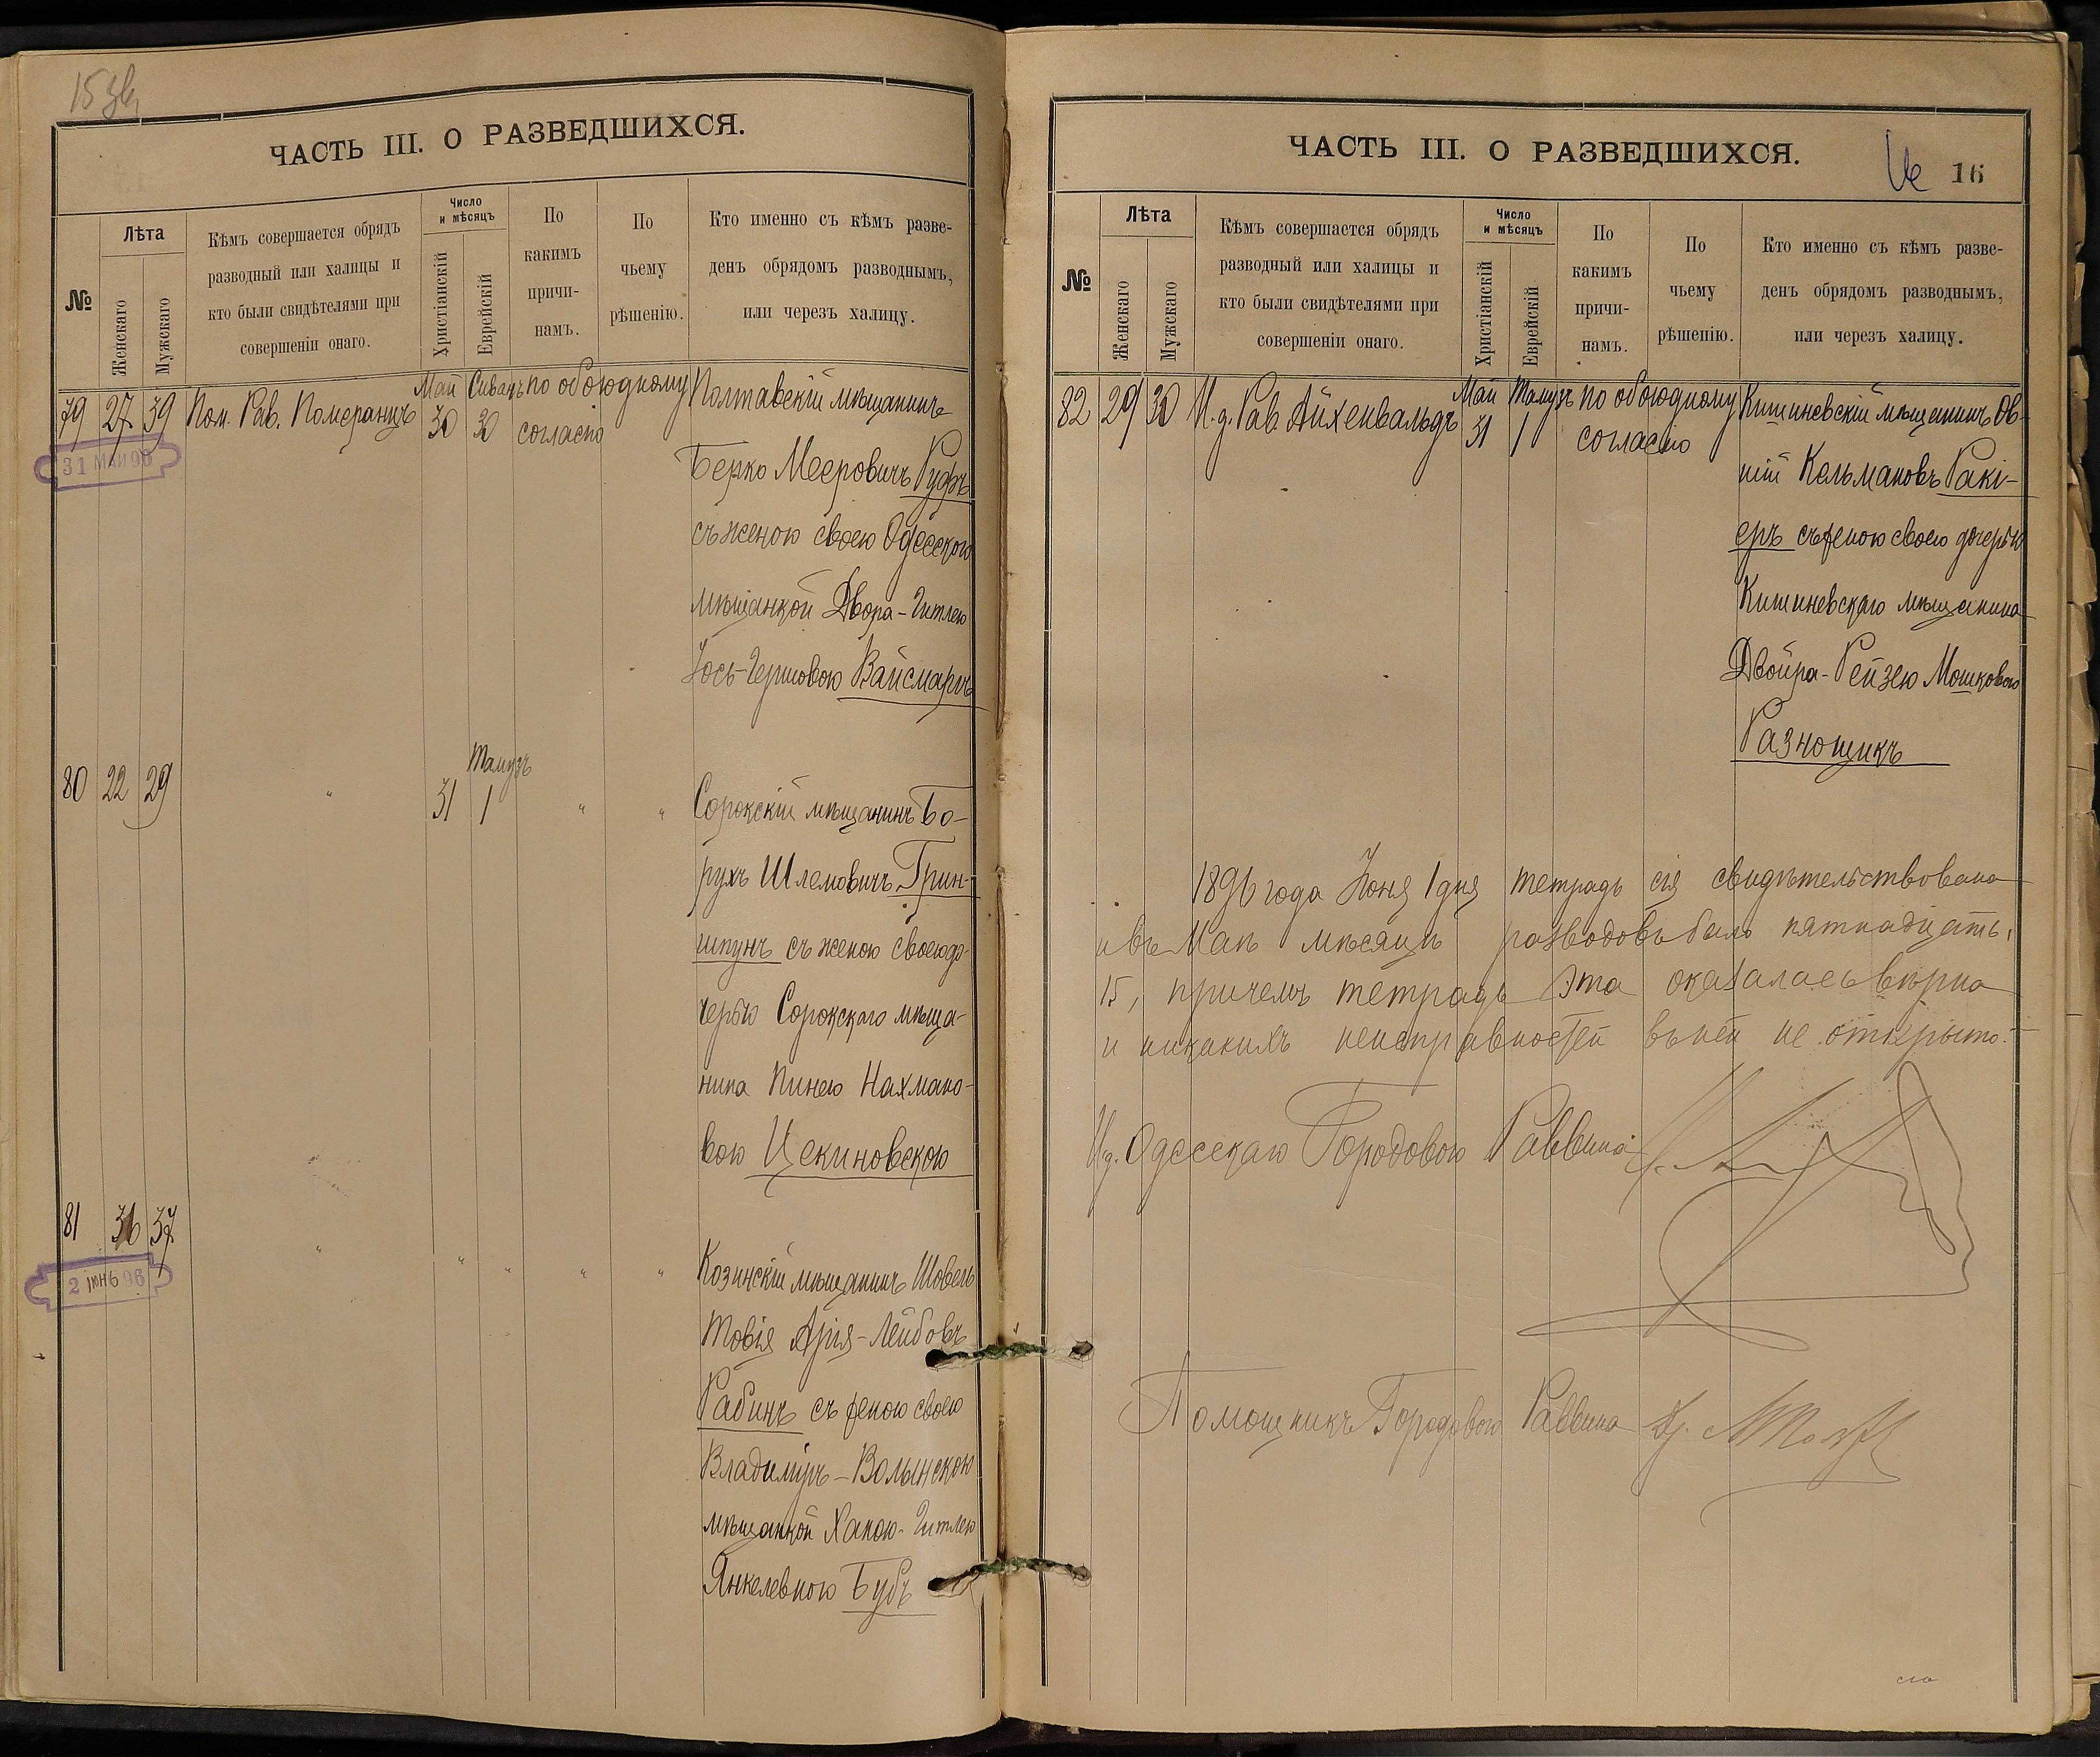 15 зв.
ЧАСТЬ III. О РАЗВЕДШИХСЯ.
№
Лѣта
Женскаго
Мужскаго
Кѣмъ совершается обрядъ
разводный или халицы и
кто были свидѣтелями при
совершеніи онаго.
Число
и мѣсяцъ
Христіанскій
Еврейскій
По
какимъ
причи-
намъ.
По
чьему
рѣшенію.
Кто именно съ кѣмъ разве-
денъ обрядомъ разводнымъ,
или черезъ халицу.
79 27 39 Пом. Рав. Померанцъ Май 30 Сиванъ 30 по обоюдному согласію
31 МАЙ 96
Полтавскій мѣщанинъ
Берко Мееровичъ Руфъ
съ женою своею Одесскою
мѣщанкой Двора-Гитлею
Іось-Гершовою Вайсмаркъ
80 22 29 " 31 Тамузъ 1 " "
Сорокскій мѣщанинъ Бо-
рухъ Шлемовичъ Грин-
шпунъ съ женою своею до-
черью Сорокскаго мѣща-
нина Пинею Нахмано-
вою Цекиновскою
81 36 37 " " " " "
2 ІЮНЬ 96
Козинскій мѣщанинъ Шовель
Товія Арія-Лейбовъ
Рабинъ съ женою своею
Владиміръ-Волынскою
мѣщанкой Ханою-Гитлею
Янкелевною Бубъ
ЧАСТЬ III. О РАЗВЕДШИХСЯ.
16
№
Лѣта
Женскаго
Мужскаго
Кѣмъ совершается обрядъ
разводный или халицы и
кто были свидѣтелями при
совершеніи онаго.
Число
и мѣсяцъ
Христіанскій
Еврейскій
По
какимъ
причи-
намъ.
По
чьему
рѣшенію.
Кто именно съ кѣмъ разве-
денъ обрядомъ разводнымъ,
или черезъ халицу.
82 29 30 И.д. Рав. Айхенвальдъ Май 31 Тамузъ 1 по обоюдному согласію
Кишиневскій мѣщанинъ Ов-
шій Кельмановъ Ракі-
еръ съ женою своею дочерью
Кишиневскаго мѣщанина
Двойра-Рейзею Мошковою
Разнощикъ
1896 года Іюня 1 дня тетрадь сія свидѣтельствована
и въ Маѣ мѣсяцѣ разводовъ было пятнадцать,
15, причемъ тетрадь эта оказалась вѣрна
и никакихъ неисправностей въ ней не открыто.
И.д. Одесскаго Городового Раввина
Помощникъ Городового Раввина Др.